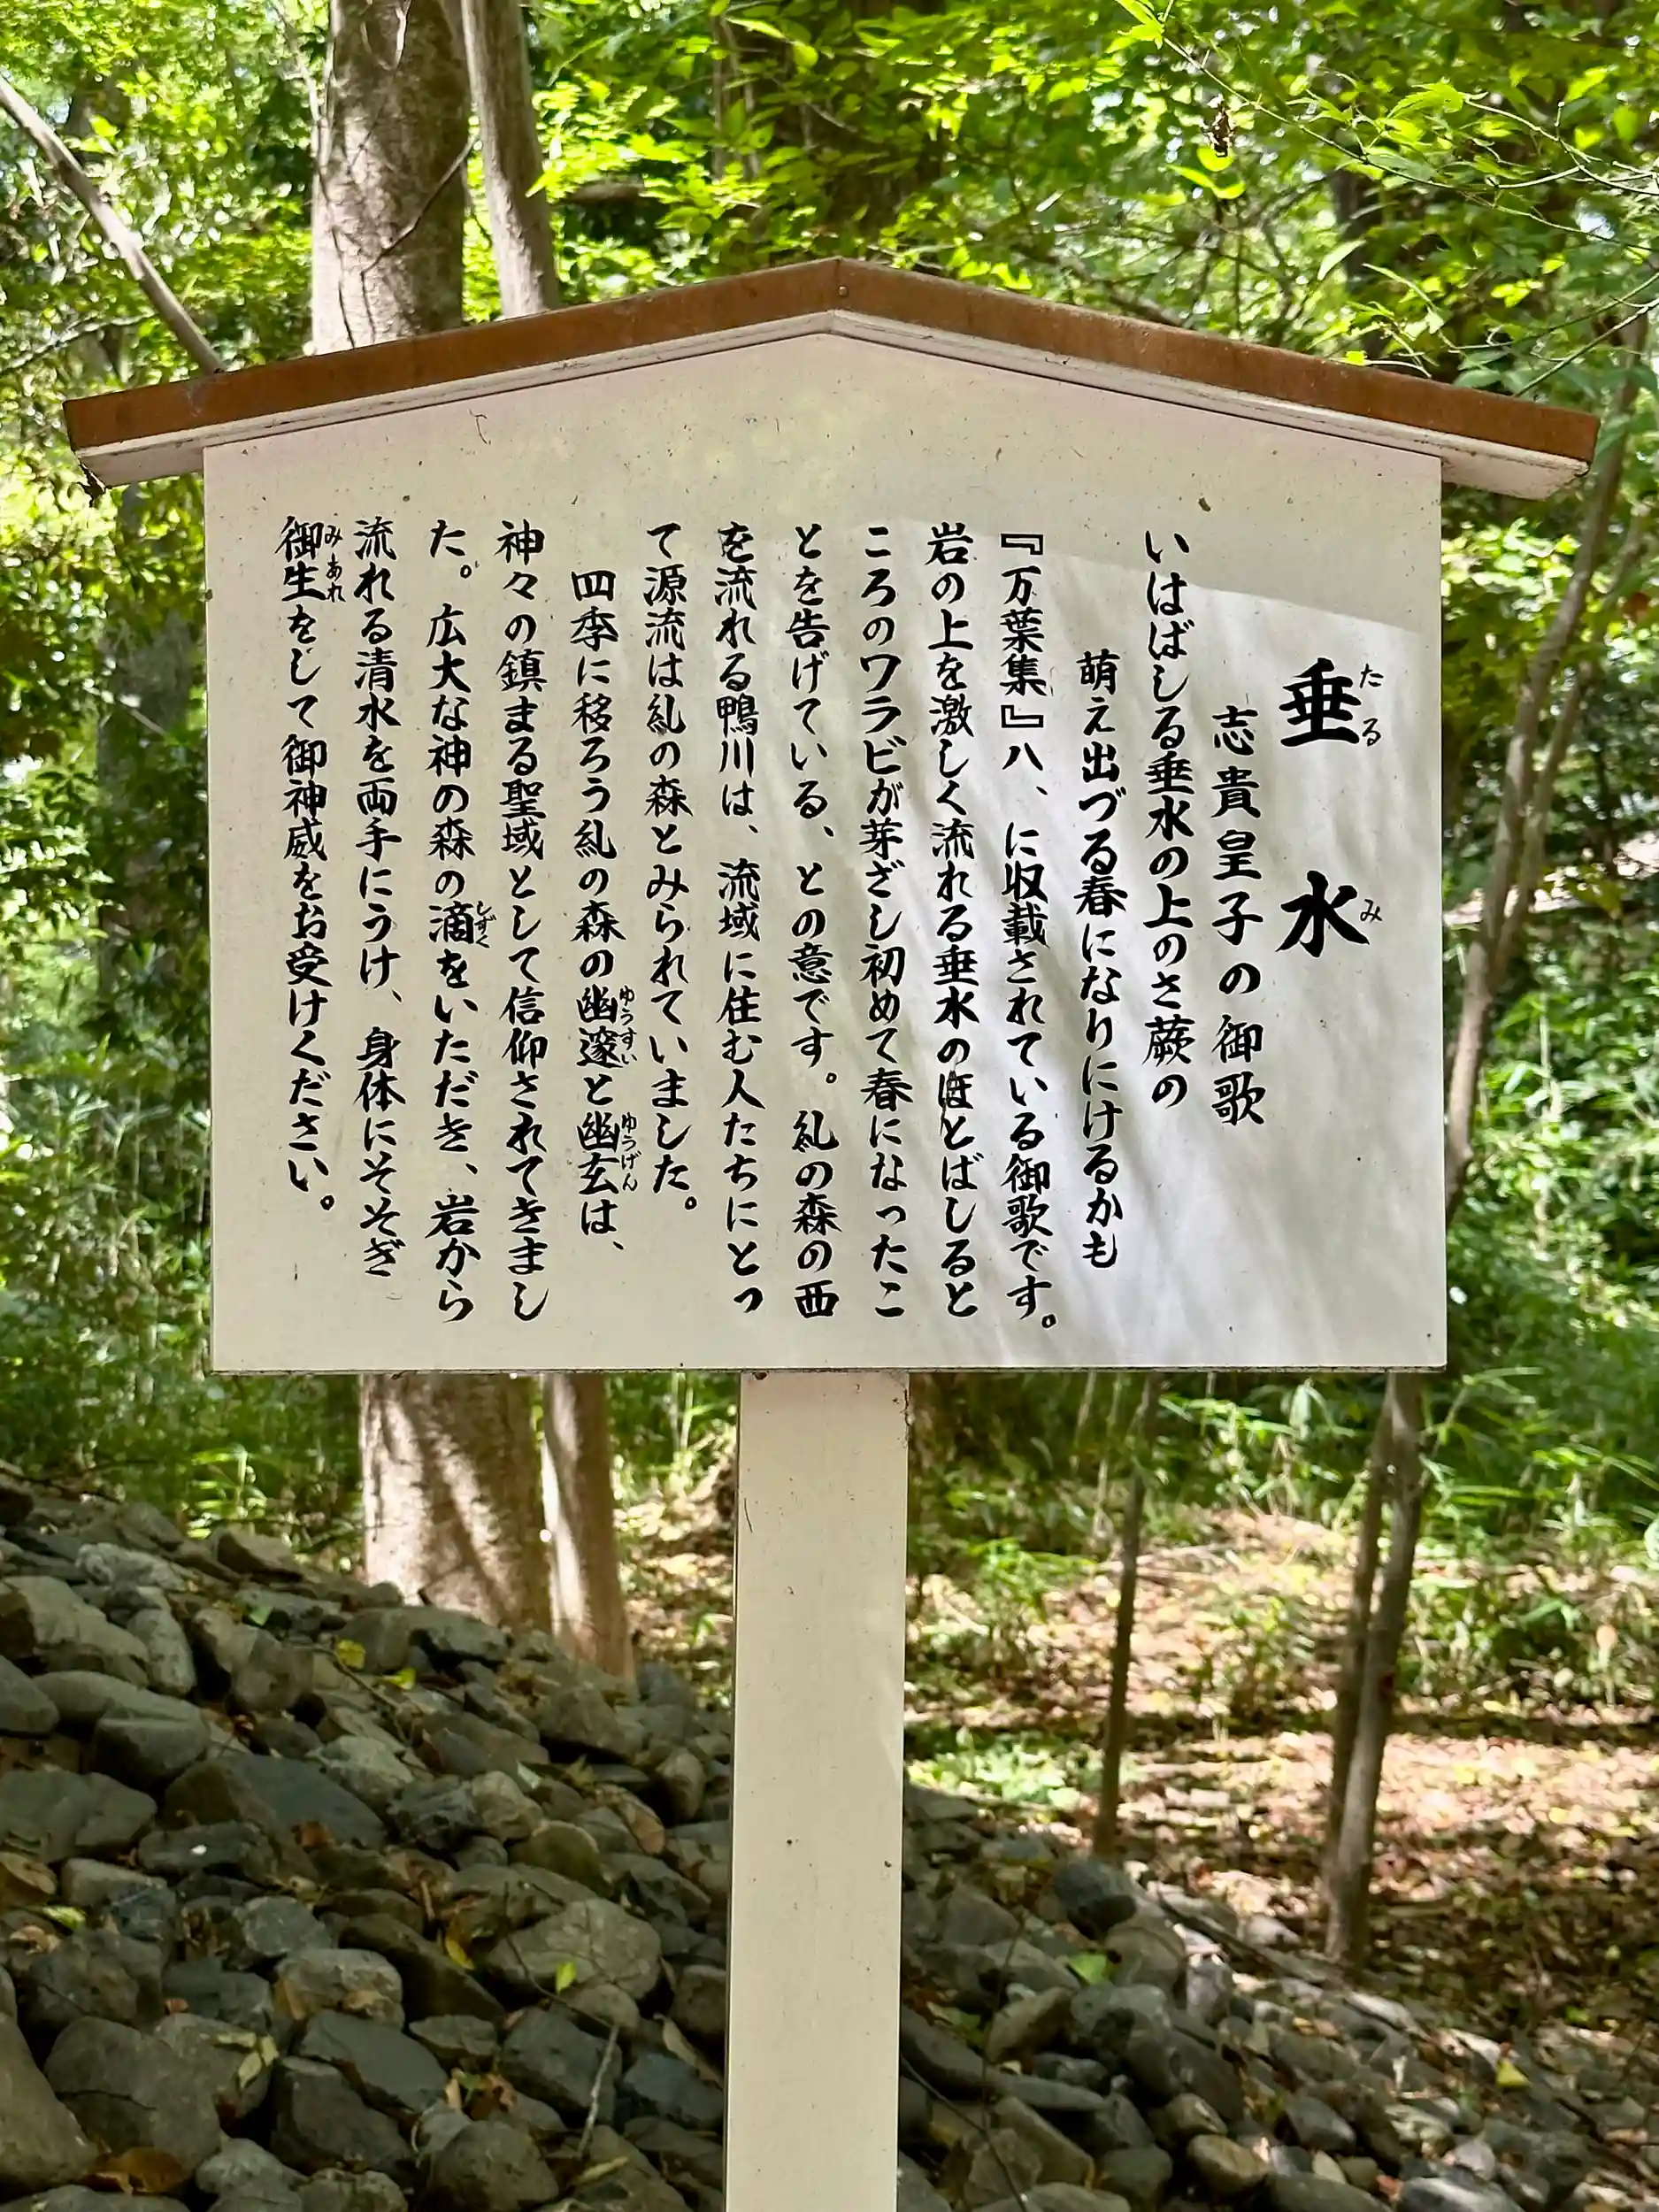 垂水
たるみ
志貴皇子の御歌
いはばしる垂水の上のさ蕨の
萌え出づる春になりにけるかも
『万葉集』八、に収載されている御歌です。
岩の上を激しく流れる垂水のほとばしると
ころのワラビが芽ざし初めて春になったこ
とを告げている、との意です。糺の森の西
を流れる鴨川は、流域に住む人たちにとっ
て源流は糺の森とみられていました。
四季に移ろう糺の森の幽邃と幽玄は、
ゆうすい ゆうげん
神々の鎮まる聖域として信仰されてきまし
た。広大な神の森の滴をいただき、岩から
しずく
流れる清水を両手にうけ、身体にそそぎ
御生をして御神威をお受けください。
みあれ